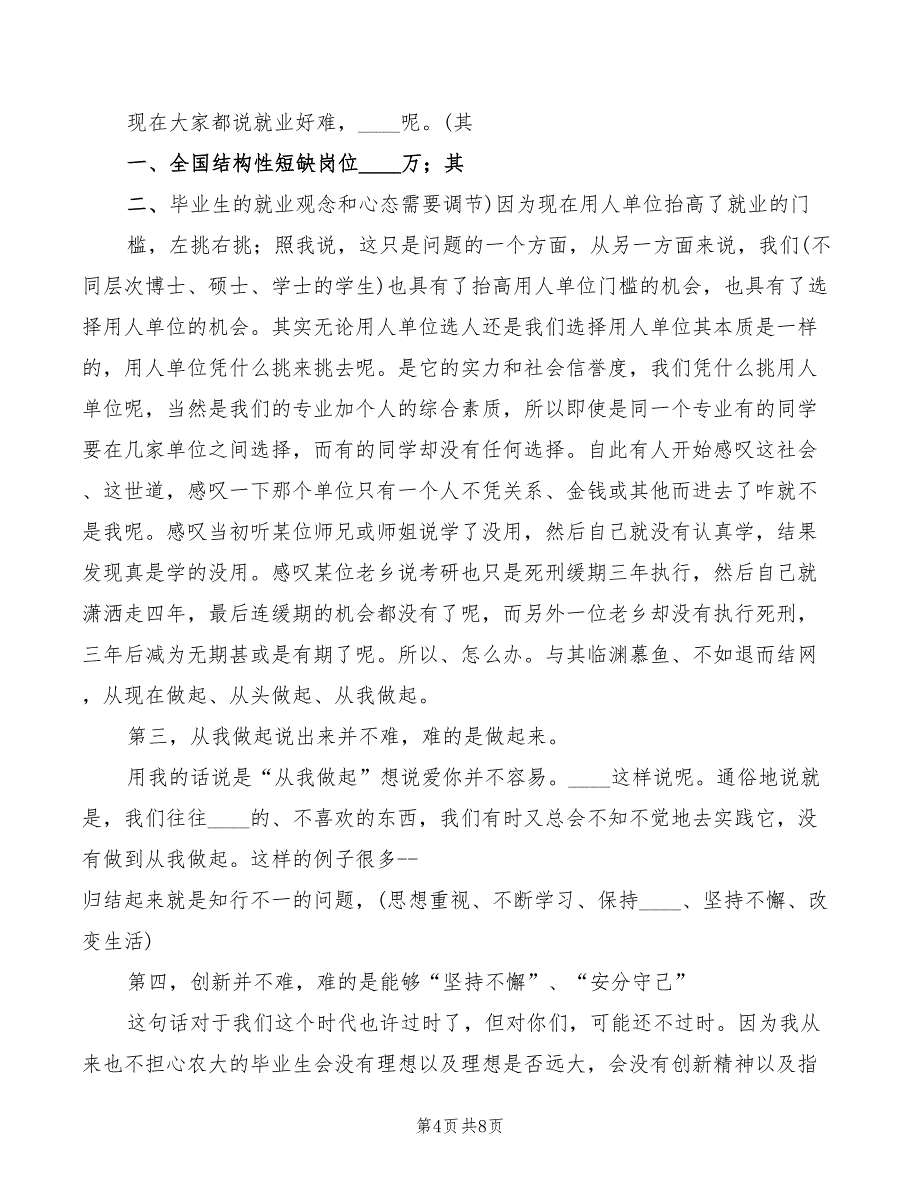 现在大家都说就业好难，____呢。(其
一、全国结构性短缺岗位____万；其
二、毕业生的就业观念和心态需要调节)因为现在用人单位抬高了就业的门
槛，左挑右挑；照我说，这只是问题的一个方面，从另一方面来说，我们(不
同层次博士、硕士、学士的学生)也具有了抬高用人单位门槛的机会，也具有了选
择用人单位的机会。其实无论用人单位选人还是我们选择用人单位其本质是一样
的，用人单位凭什么挑来挑去呢。是它的实力和社会信誉度，我们凭什么挑用人
单位呢，当然是我们的专业加个人的综合素质，所以即使是同一个专业有的同学
要在几家单位之间选择，而有的同学却没有任何选择。自此有人开始感叹这社会
、这世道，感叹一下那个单位只有一个人不凭关系、金钱或其他而进去了咋就不
是我呢。感叹当初听某位师兄或师姐说学了没用，然后自己就没有认真学，结果
发现真是学的没用。感叹某位老乡说考研也只是死刑缓期三年执行，然后自己就
潇洒走四年，最后连缓期的机会都没有了呢，而另外一位老乡却没有执行死刑，
三年后减为无期甚或是有期了呢。所以、怎么办。与其临渊慕鱼、不如退而结网
，从现在做起、从头做起、从我做起。
第三，从我做起说出来并不难，难的是做起来。
用我的话说是“从我做起”想说爱你并不容易。____这样说呢。通俗地说就
是，我们往往____的、不喜欢的东西，我们有时又总会不知不觉地去实践它，没
有做到从我做起。这样的例子很多--
归结起来就是知行不一的问题，(思想重视、不断学习、保持____、坚持不懈、改
变生活)
第四，创新并不难，难的是能够“坚持不懈”、“安分守己”
这句话对于我们这个时代也许过时了，但对你们，可能还不过时。因为我从
来也不担心农大的毕业生会没有理想以及理想是否远大，会没有创新精神以及指
第4页 共8页